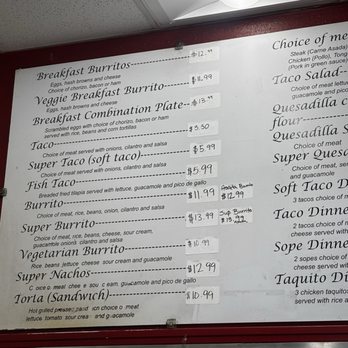 Breakfast Burritos $12.99
Eggs, hash browns and cheese
Choice of chorizo, bacon or ham
Veggie Breakfast Burrito $11.99
Eggs, hash browns and cheese
Breakfast Combination Plate
Scrambled eggs with choice of chorizo, bacon or ham
served with rice, beans and corn tortillas
Taco $3.50
Choice of meat served with onions, cilantro and salsa
Super Taco (soft taco) $5.99
Choice of meat served with onions, cilantro and salsa
Fish Taco $5.99
Breaded fried tilapia served with lettuce, guacamole and pico de gallo
Burrito $11.99 $12.99
Choice of meat, rice, beans, onion, cilantro and salsa
Super Burrito $13.99 Sup Burrito
Choice of meat, rice, beans, cheese, sour cream,
guacamole onions cilantro and salsa
Vegetarian Burrito $10.99
Rice beans lettuce cheese sour cream and guacamole
Super Nachos $12.99
guacamole and pico de gallo
Torta (Sandwich) $10.99
lettuce tomato sour and guacamole
Choice of me
Steak (Carne Asada)
Chicken (Pollo), Tong
(Pork in green sauce)
Taco Salad
Choice of meat
guacamole and pico
Quesadilla
flour
Quesadilla S
Choice of meat
Super Quesa
Choice of meat,
guacamole and
Soft Taco D
3 tacos choice of m
Taco Dinne
2 tacos choice of
cheese served with
Sope Dinne
2 sopes choice of
cheese served with
Taquito Di
3 chicken taquitos
served with rice a